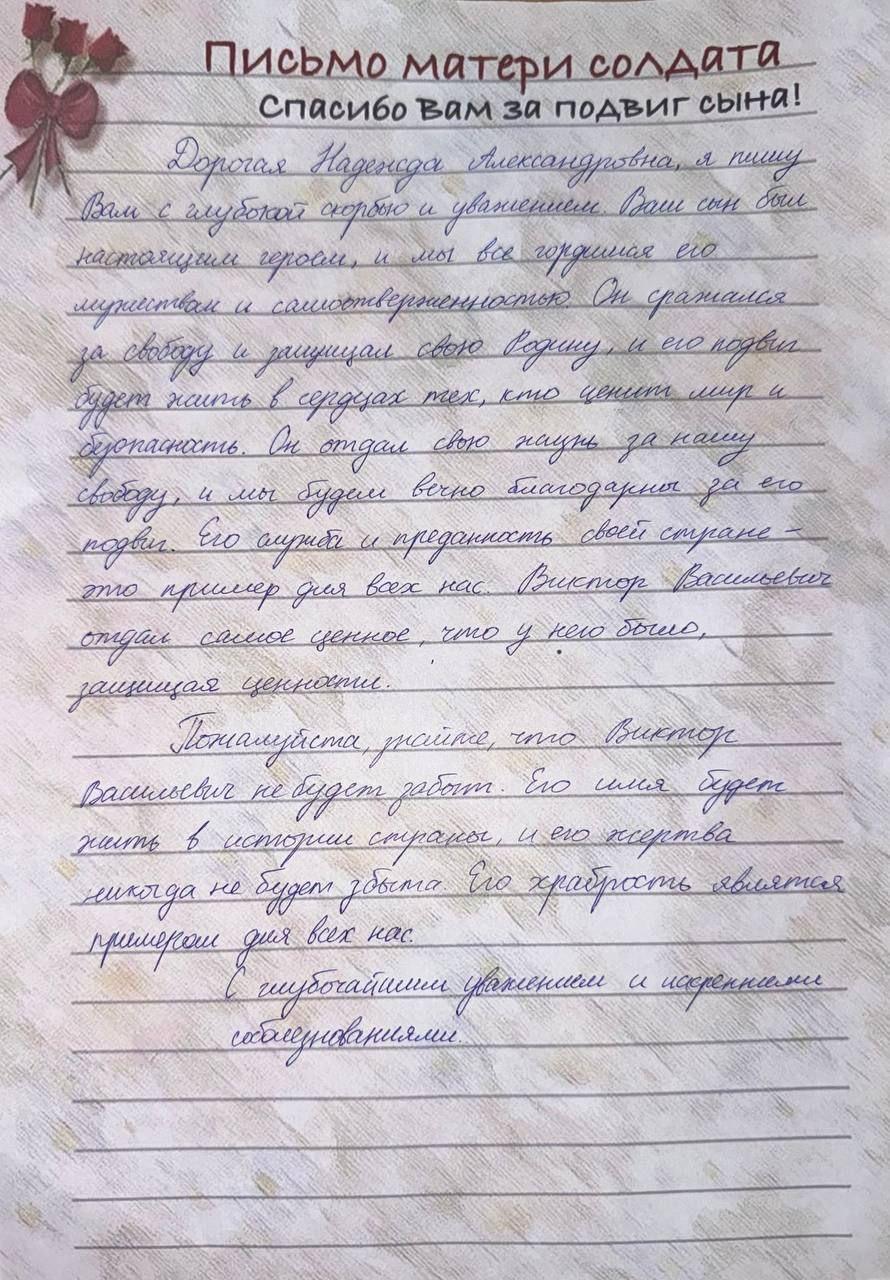 Письмо матери солдата
Спасибо Вам за подвиг сына!
Дорогая Надежда Александровна, я пишу
Вам с глубокой скорбью и уважением. Ваш сын был
настоящим героем, и мы все гордимся его
мужеством и самоотверженностью. Он сражался
за свободу и защищал свою Родину, и его подвиг
будет жить в сердцах тех, кто ценит мир и
безопасность. Он отдал свою жизнь за нашу
свободу, и мы будем вечно благодарны за его
подвиг. Его служба и преданность своей стране –
это пример для всех нас. Виктор Васильевич
отдал самое ценное, что у него было,
защищая ценности.
Пожалуйста, знайте, что Виктор
Васильевич не будет забыт. Его имя будет
жить в истории страны, и его жертва
никогда не будет збыта. Его храбрость являтся
примером для всех нас.
С глубочайшим уважением и искренними
соболезнованиями.